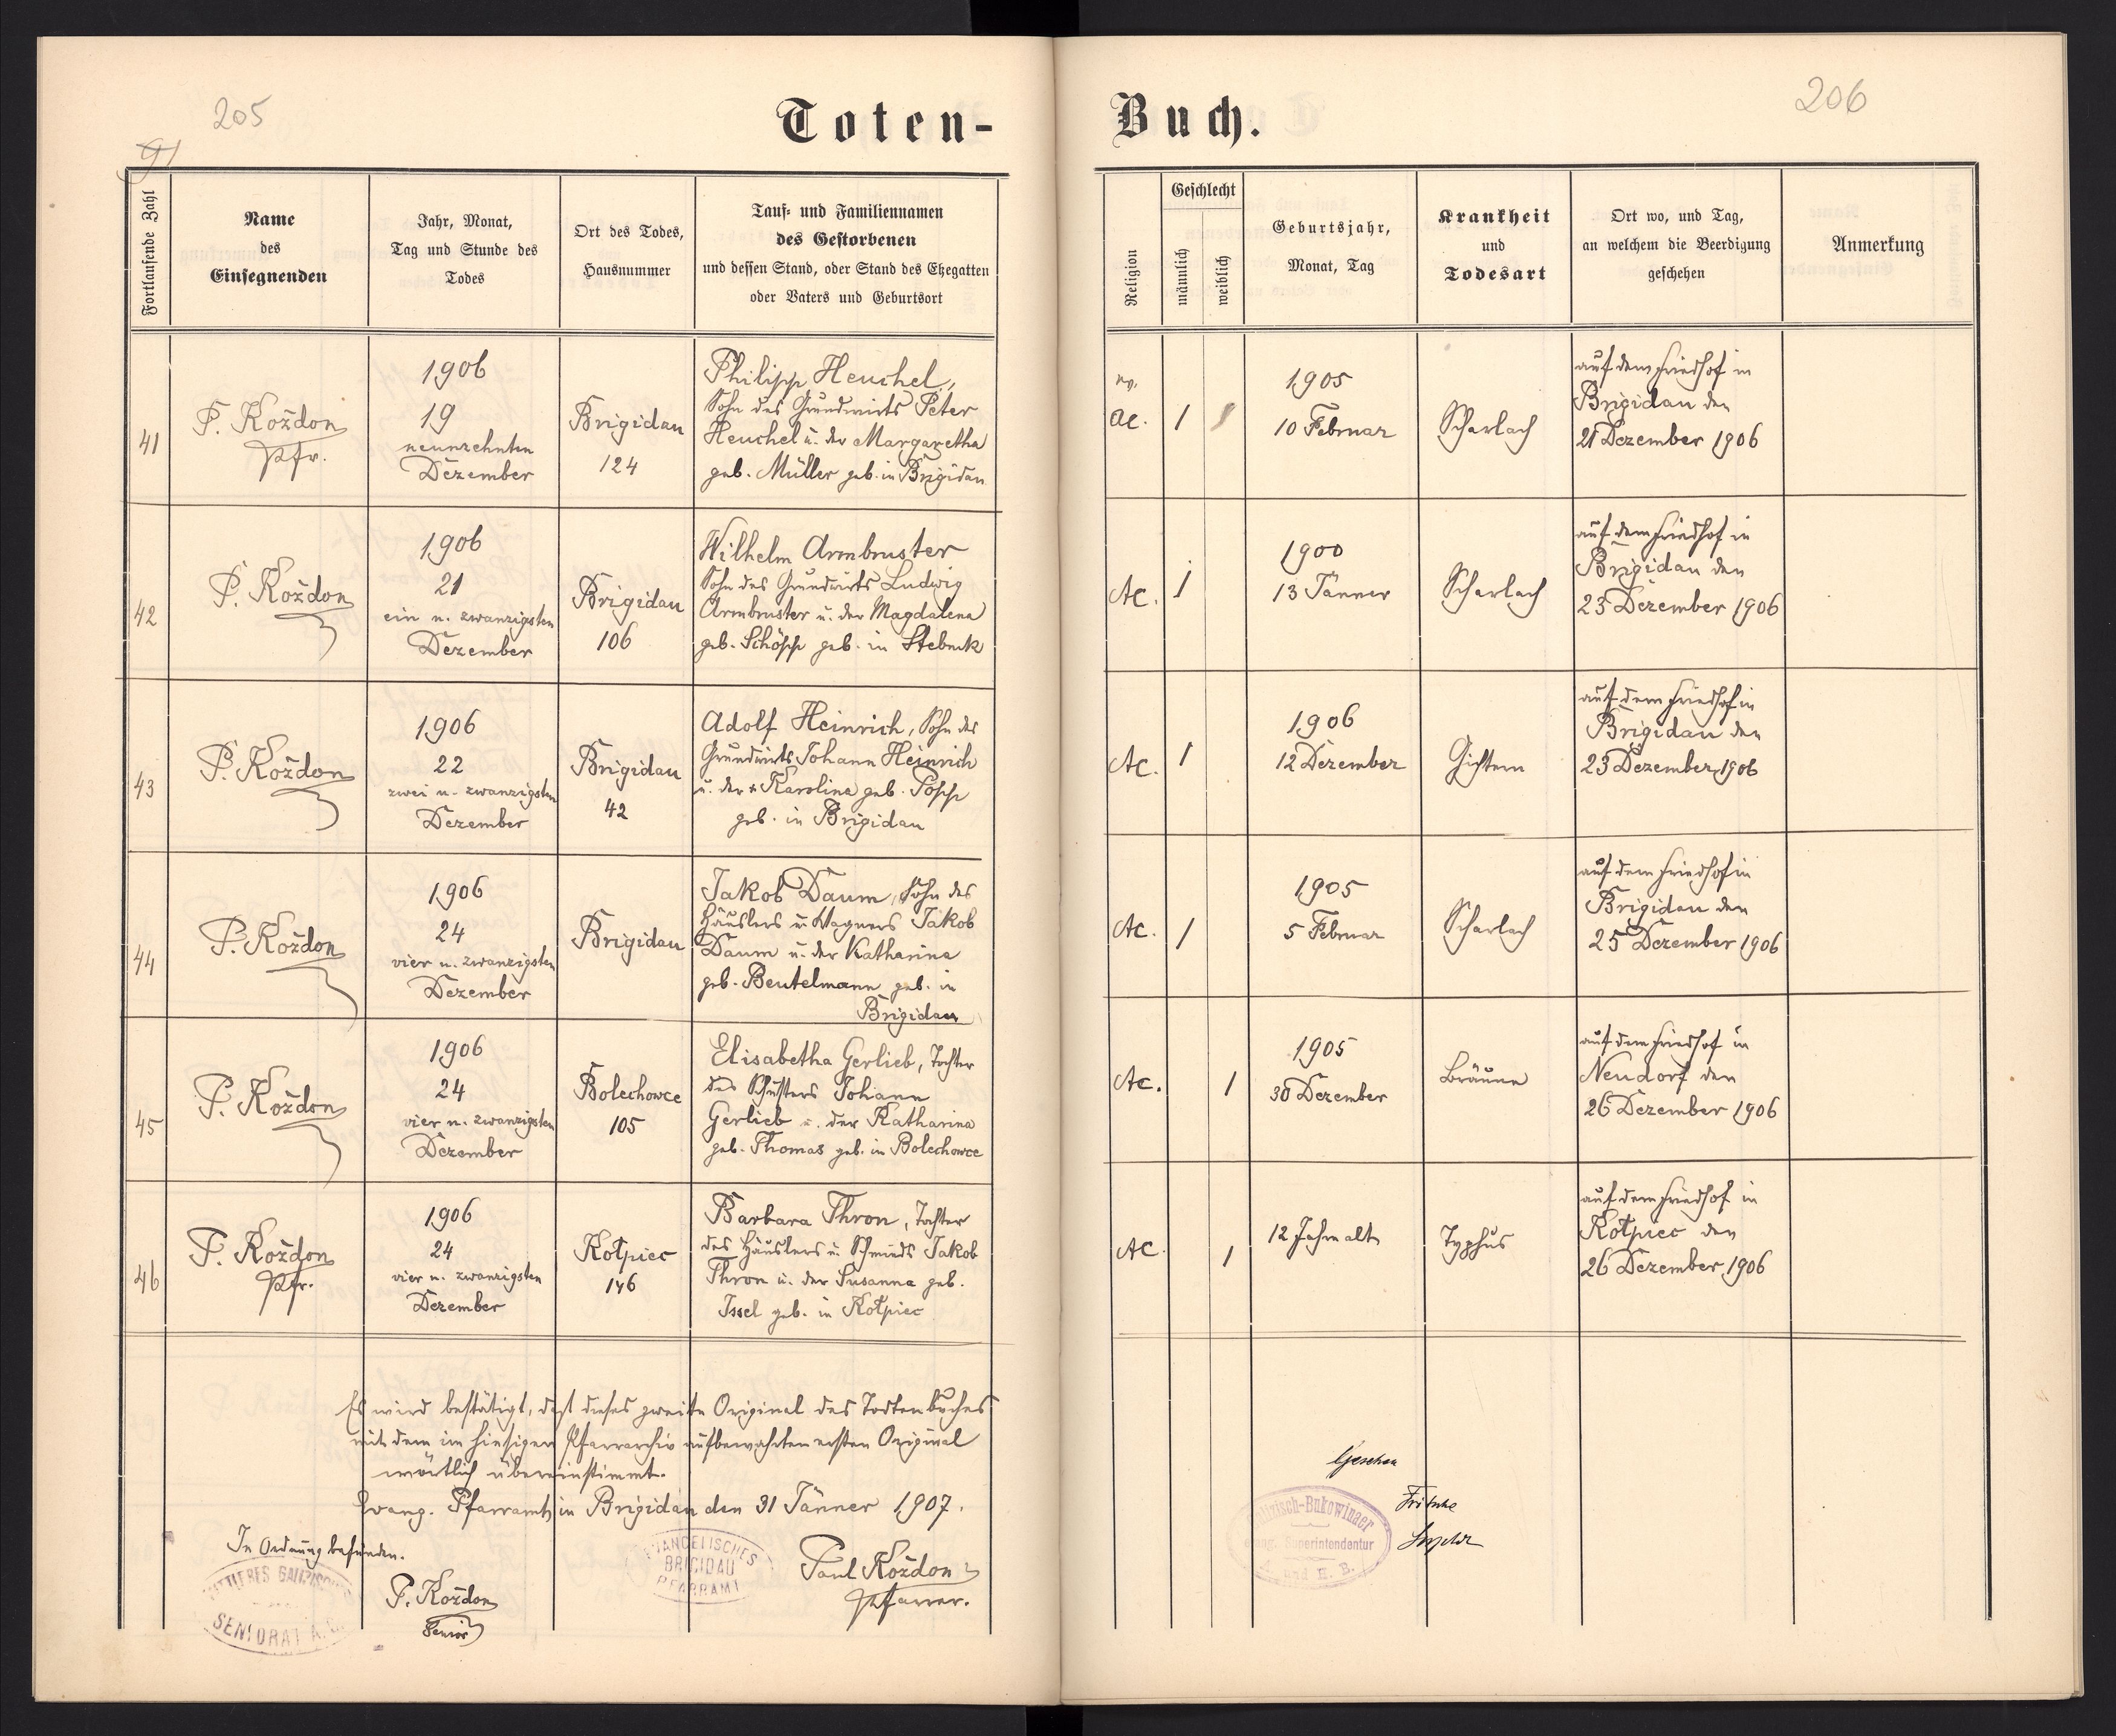 205
206
91
Toten-
Buch.
Fortlaufende Zahl
Name
des
Einsegnenden
Jahr, Monat,
Tag und Stunde des
Todes
Ort des Todes,
Hausnummer
Tauf- und Familiennamen
des Gestorbenen
und dessen Stand, oder Stand des Ehegatten
oder Vaters und Geburtsort
Religion
Geschlecht
männlich
weiblich
Geburtsjahr,
Monat, Tag
Krankheit
und
Todesart
Ort wo, und Tag,
an welchem die Beerdigung
geschehen
Anmerkung
41
P. Koždon
Pfr.
1906
19
neunzehnten
Dezember
Brigidau
124
Philipp Heuchel,
Sohn des Grundwirts Peter
Heuchel u. der Margaretha
geb. Müller geb. in Brigidau
AC.
1
1905
10 Februar
Scharlach
auf dem Friedhof in
Brigidau den
21 Dezember 1906
42
P. Koždon
1906
21
ein u. zwanzigsten
Dezember
Brigidau
106
Wilhelm Armbruster
Sohn des Grundwirts Ludwig
Armbruster u. der Magdalena
geb. Schöpp geb. in Stebnik
AC.
1
1900
13 Jänner
Scharlach
auf dem Friedhof in
Brigidau den
23 Dezember 1906
43
P. Koždon
1906
22
zwei u. zwanzigsten
Dezember
Brigidau
42
Adolf Heinrich, Sohn des
Grundwirts Johann Heinrich
u. der Karolina geb. Popp
geb. in Brigidau
AC.
1
1906
12 Dezember
Gichtern
auf dem Friedhof in
Brigidau den
23 Dezember 1906
44
P. Koždon
1906
24
vier u. zwanzigsten
Dezember
Brigidau
Jakob Daum, Sohn des
Häuslers u. Wagners Jakob
Daum u. der Katharina
geb. Beutelmann geb. in
Brigidau
AC.
1
1905
5 Februar
Scharlach
auf dem Friedhof in
Brigidau den
25 Dezember 1906
45
P. Koždon
1906
24
vier u. zwanzigsten
Dezember
Bolechowce
105
Elisabetha Gerlieb, Tochter
des Schusters Johann
Gerlieb u. der Katharina
geb. Thomas geb. in Bolechowce
AC.
1
1905
30 Dezember
Bräune
auf dem Friedhof in
Neudorf den
26 Dezember 1906
46
P. Koždon
Pfr.
1906
24
vier u. zwanzigsten
Dezember
Kołpiec
146
Barbara Thron, Tochter
des Häuslers u. Schmieds Jakob
Thron u. der Susanna geb.
Issel geb. in Kołpiec
AC
1
12 Jahre alt
Typhus
auf dem Friedhof in
Kołpiec den
26 Dezember 1906
Es wird bestätigt, daß dieses zweite Original des Todtenbuches
mit dem im hiesigen Pfarrarchiv aufbewahrten ersten Original
wörtlich übereinstimmt.
Evang. Pfarramt in Brigidau den 31 Jänner 1907.
In Ordnung befunden.
P. Koždon
Senior
SENIORAT A.
EVANGELISCHES
BRIGIDAU
PFARRAMT
Paul Koždon
Pfarrer.
Gesehen
Fritsche
Galizisch-Bukowinaer
evang. Superintendentur
A. und H. B.